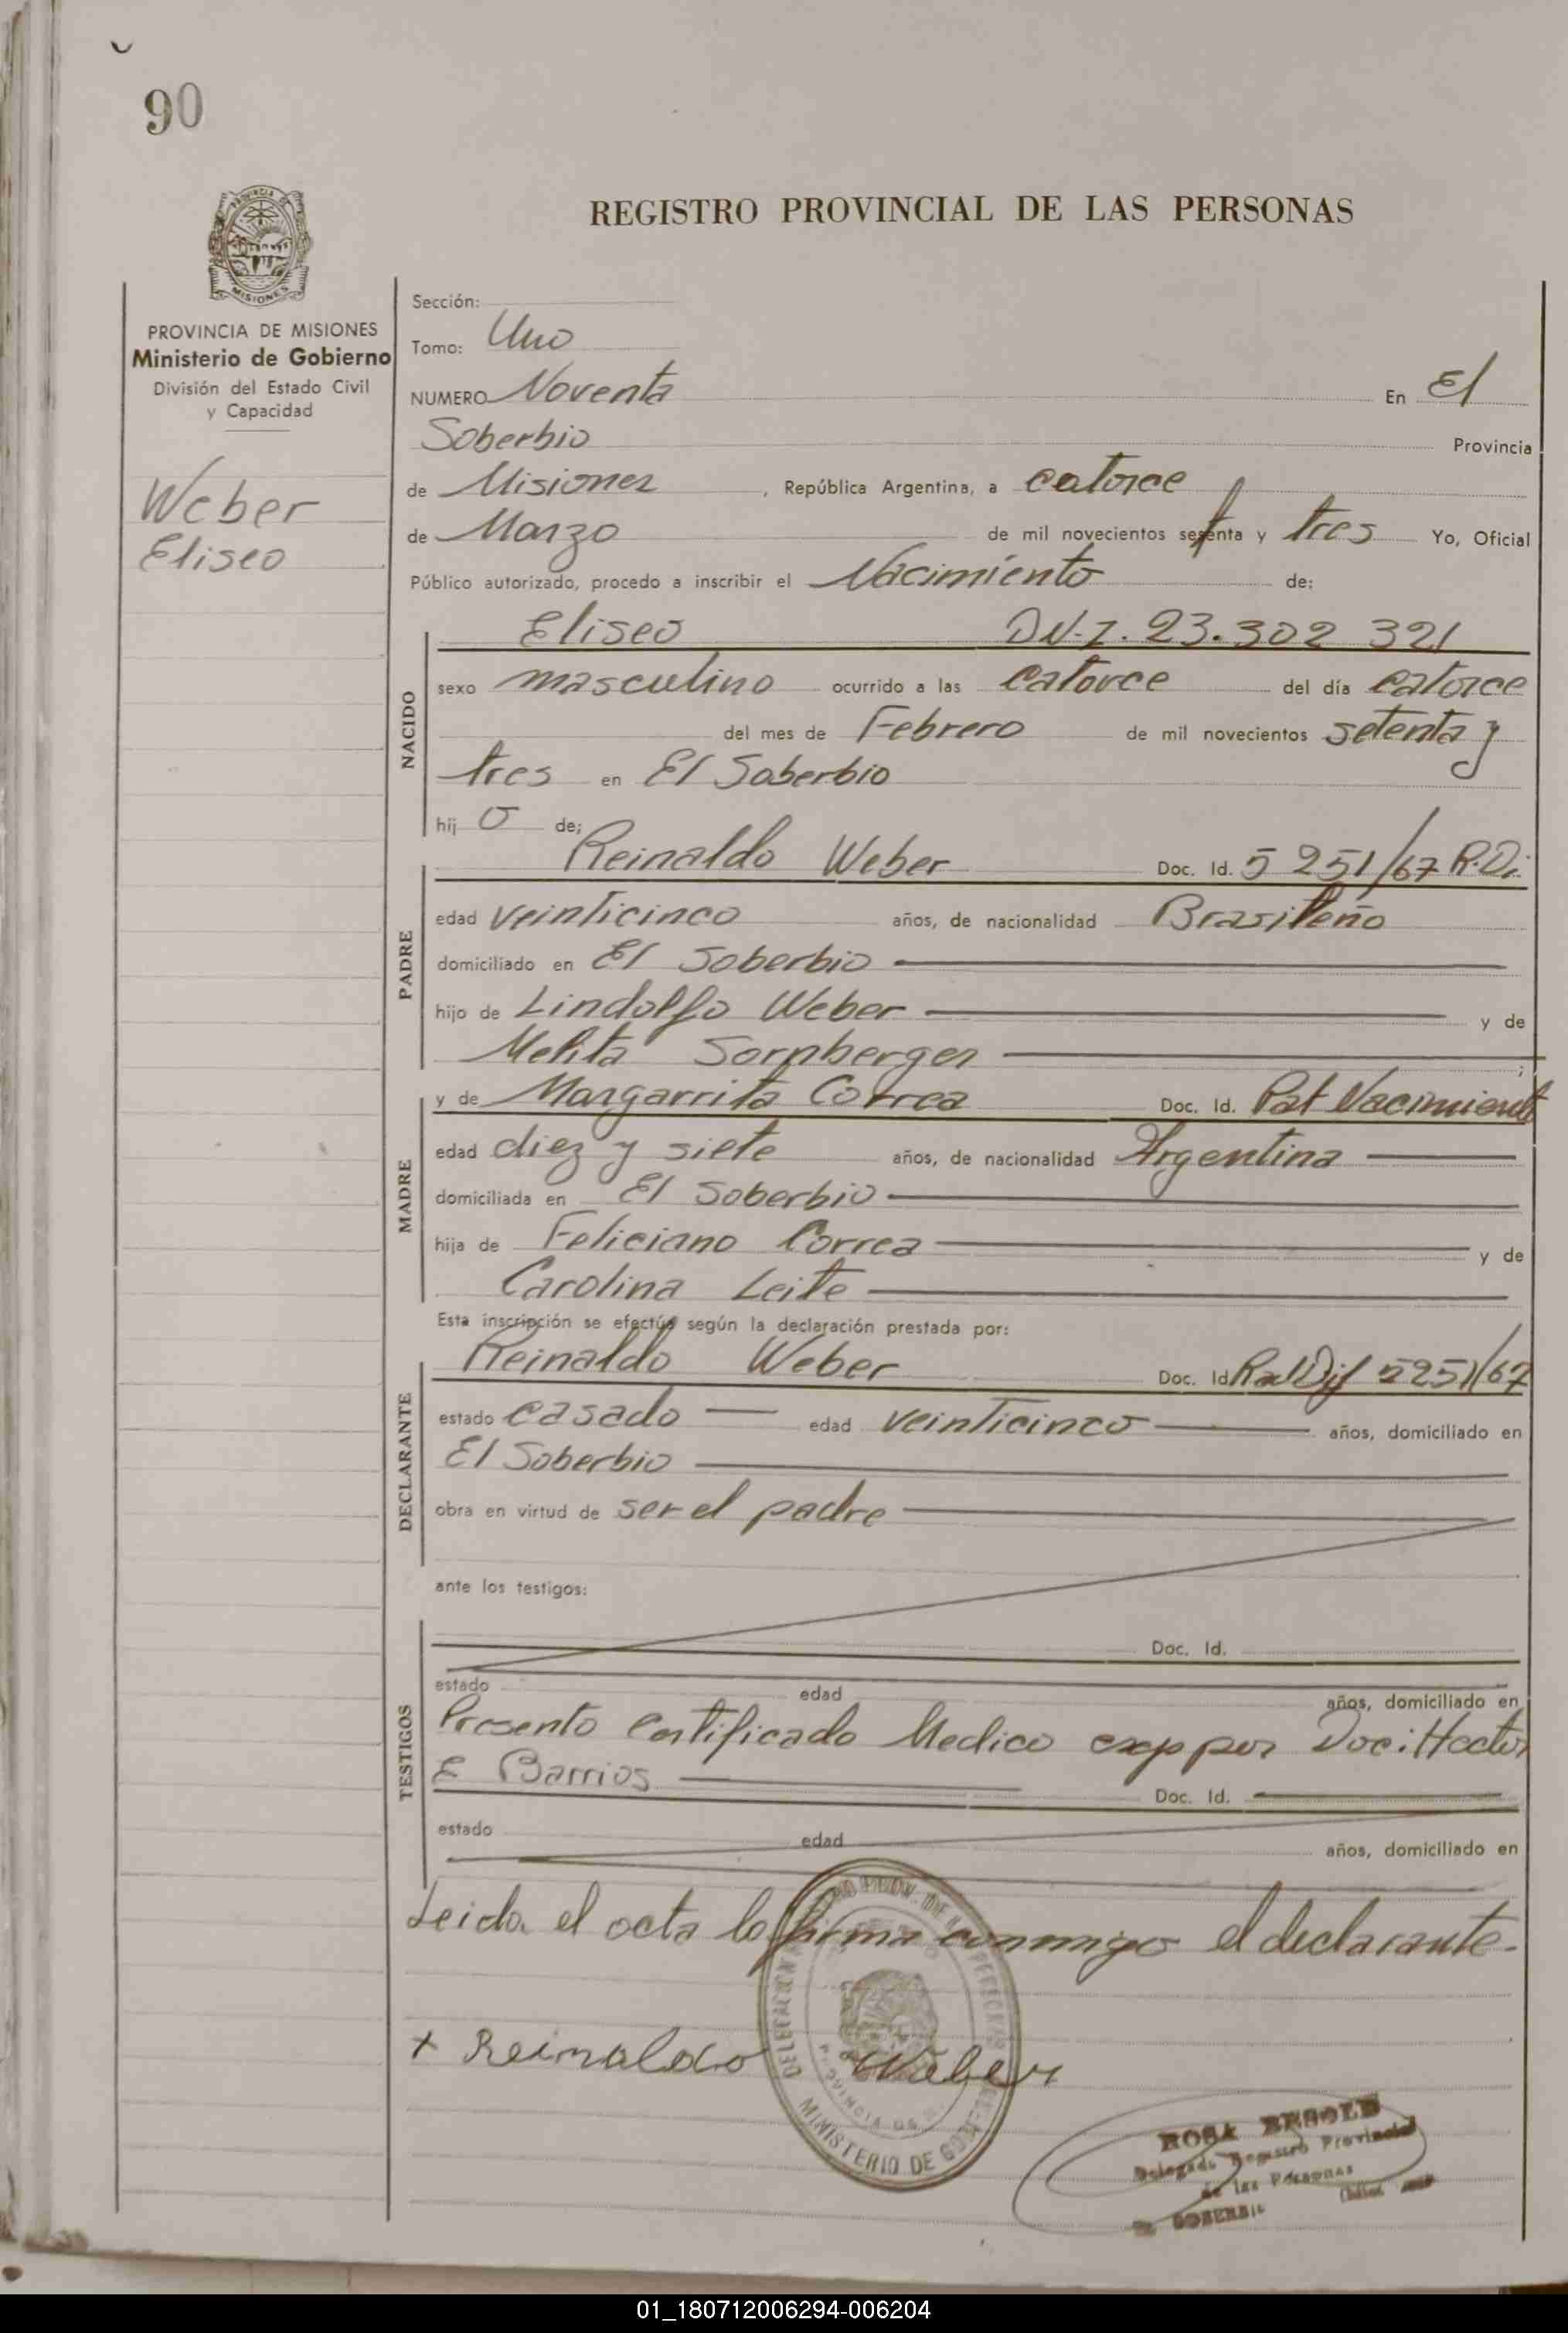 90
REGISTRO PROVINCIAL DE LAS PERSONAS
PROVINCIA DE
MISIONES
PROVINCIA DE MISIONES
Ministerio de Gobierno
División del Estado Civil
y Capacidad
Weber
Eliseo
Sección:
Tomo: Uno
NUMERO Noventa En El
Soberbio Provincia
de Misiones, República Argentina, a catorce
de Marzo de mil novecientos setenta y tres Yo, Oficial
Público autorizado, procedo a inscribir el Nacimiento de:
NACIDO
Eliseo D.N.I. 23.302 321
sexo masculino ocurrido a las catorce del día catorce
del mes de Febrero de mil novecientos setenta y
tres en El Soberbio
hij o de;
PADRE
Reinaldo Weber Doc. Id. 5251/67 R.Di.
edad veinticinco años, de nacionalidad Brasileño
domiciliado en El Soberbio
hijo de Lindolfo Weber y de
Melita Sornberger ;
MADRE
y de Margarrita Correa Doc. Id. Pat Nacimiento
edad diez y siete años, de nacionalidad Argentina
domiciliada en El Soberbio
hija de Feliciano Correa y de
Carolina Leite
Esta inscripción se efectúa según la declaración prestada por:
DECLARANTE
Reinaldo Weber Doc. Id. 5251/67
estado casado edad veinticinco años, domiciliado en
El Soberbio
obra en virtud de ser el padre
ante los testigos:
TESTIGOS
Doc. Id.
estado edad años, domiciliado en
Presento certificado Medico exp por Doc: Hector
E Barrios Doc. Id.
estado edad años, domiciliado en
Leida el acta la firma conmigo el declarante.
+ Reinaldo Weber
MINISTERIO DE
ROSA BESOLD
Delegada Registro Provincial
de las Personas
SOBERBIO
01_180712006294-006204